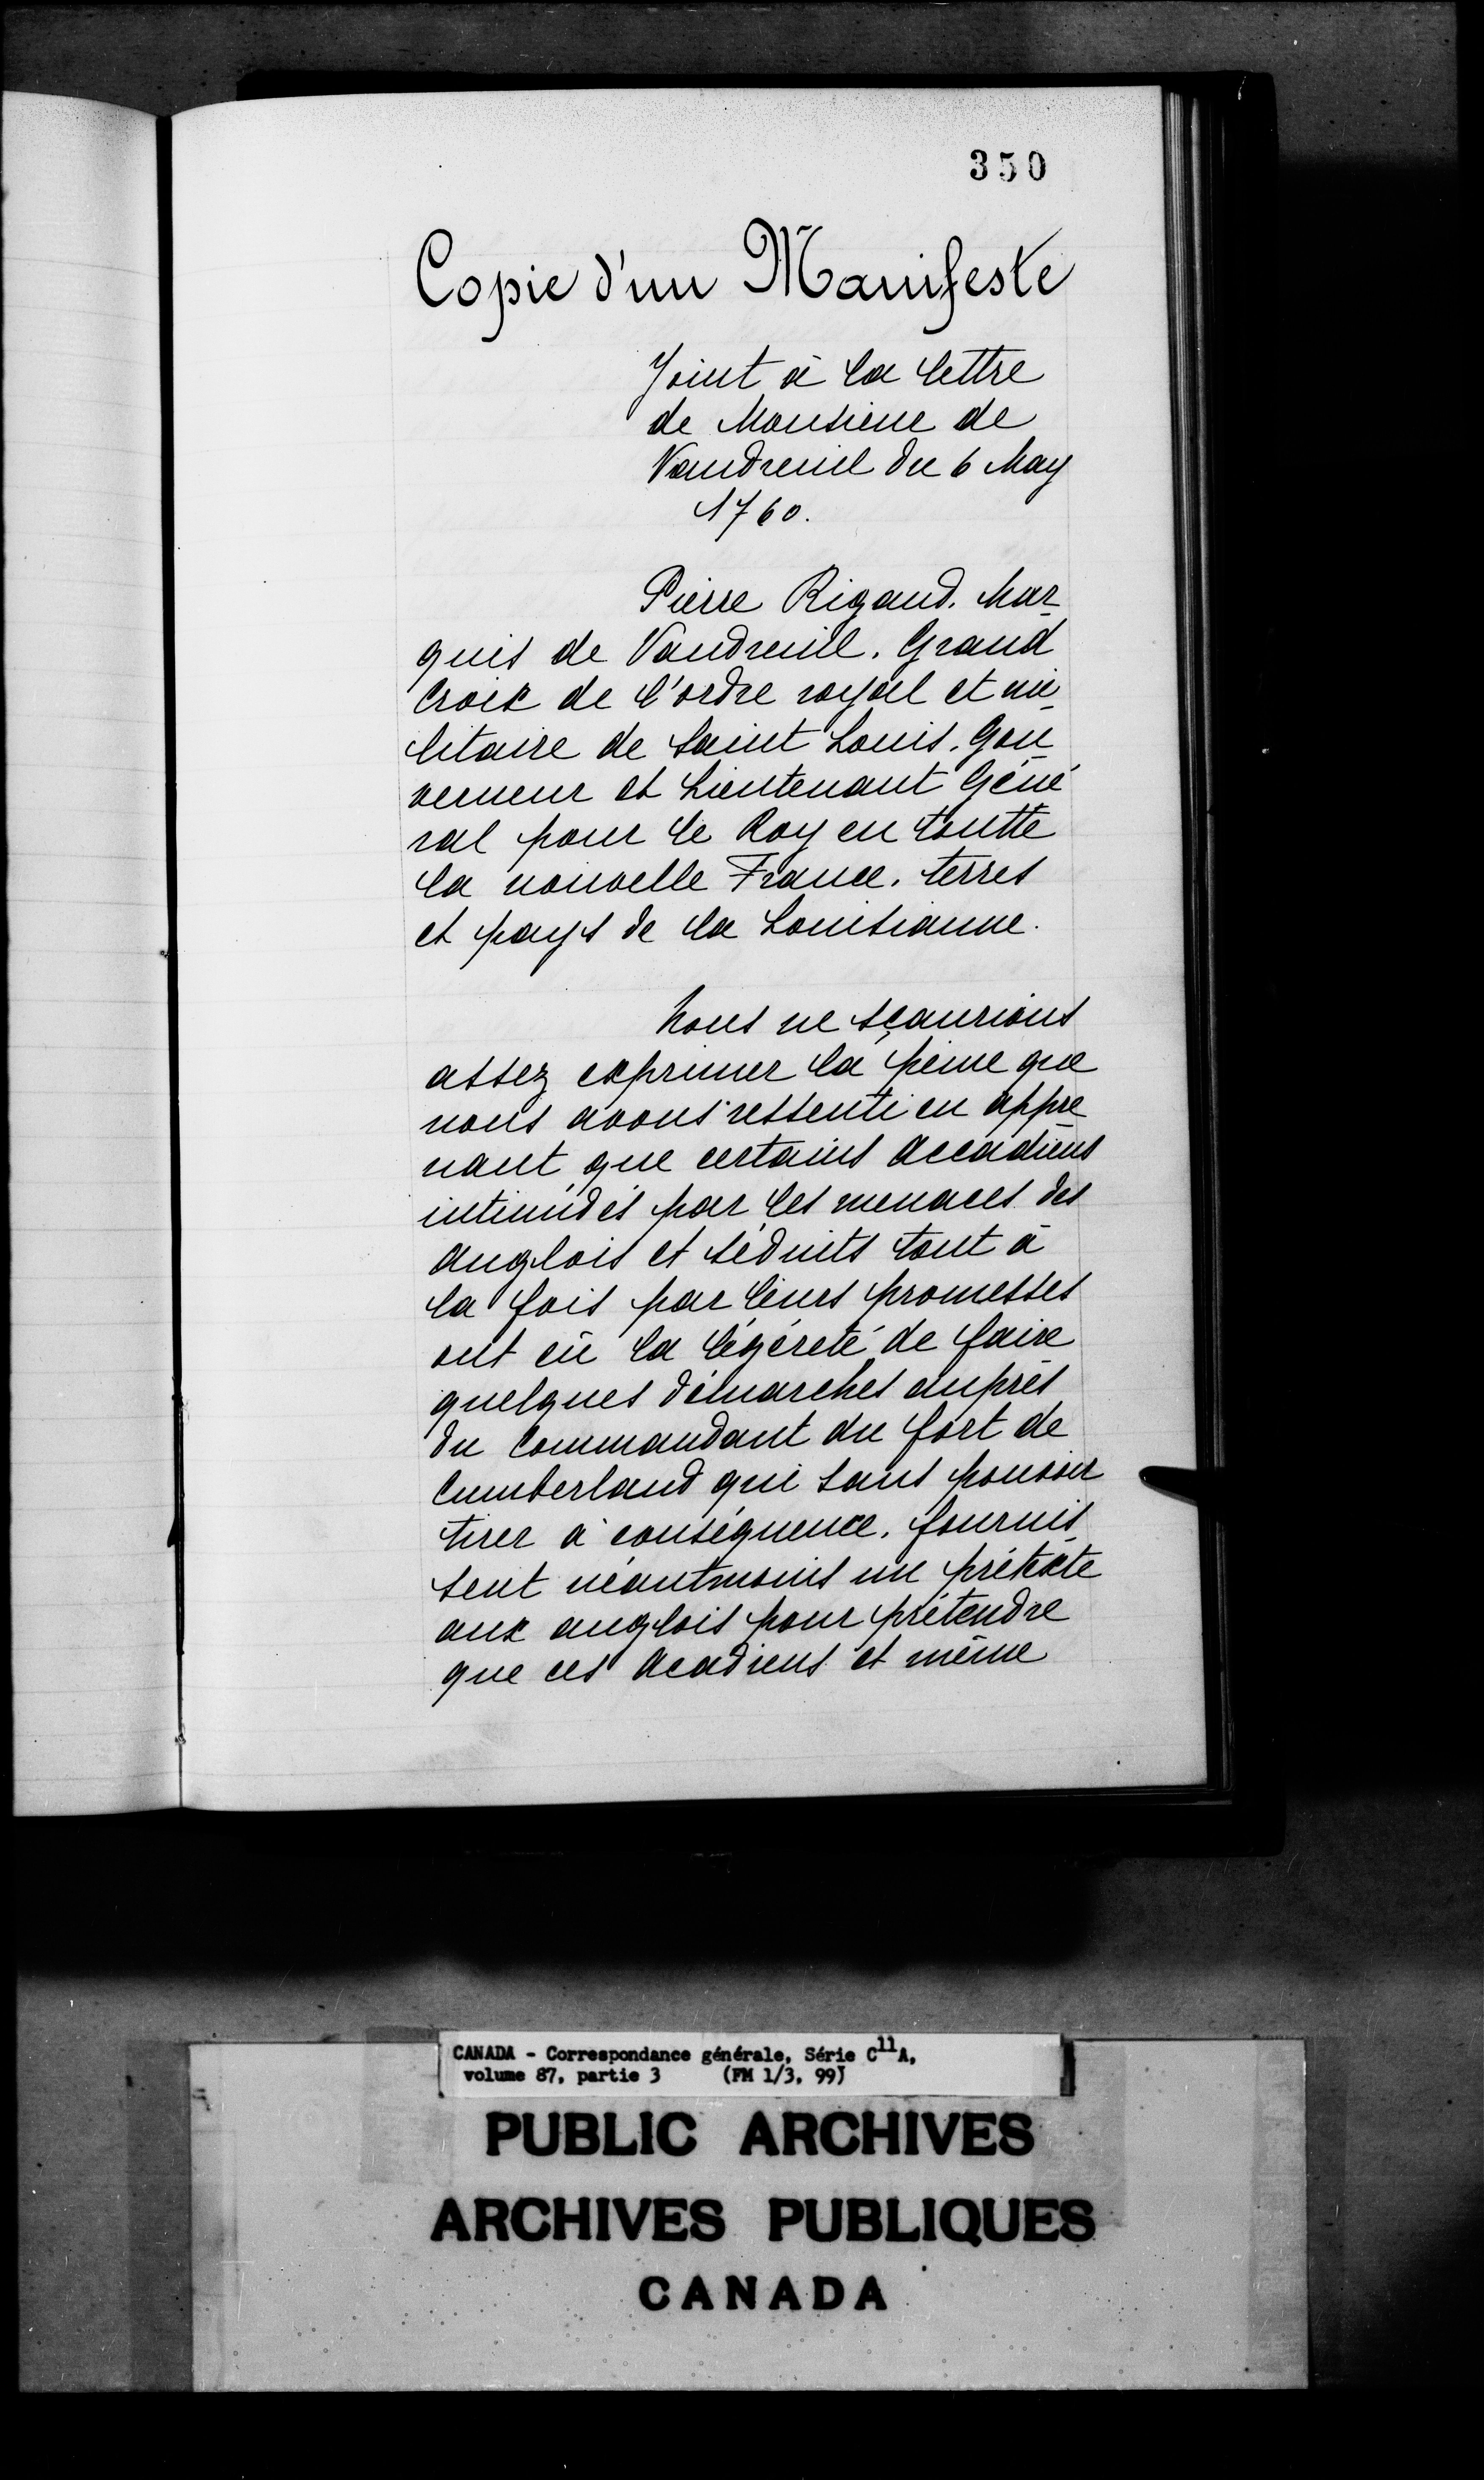 350
Copie d'un Manifeste
Joint à la lettre
de Monsieur de
Vaudreuil du 6 May
1760.
Pierre Rigaud. Mar
quis de Vaudreuil. Grand
Croix de l'ordre royal et mi
litaire de Saint Louis. Gou
verneur et Lieutenant Géné
ral pour le Roy en toutte
la nouvelle France. terres
et pays de la Louisianne.
Nous ne sçaurions
assez exprimer la peine que
nous avons ressenti en appre
nant que certains Accadiens
intimidés par les menaces des
anglois et séduits tout à
la fois par leurs promesses
ont eû la légéreté de faire
quelques démarches auprès
du Commandant du fort de
Cumberland qui sans pouvoir
tirer à conséquence. fournis
sent néantmoins un prétexte
aux anglois pour prétendre
que ces Acadiens et même
CANADA - Correspondance générale, Série C11A,
volume 87, partie 3 (FM 1/3, 99)
PUBLIC ARCHIVES
ARCHIVES PUBLIQUES
CANADA